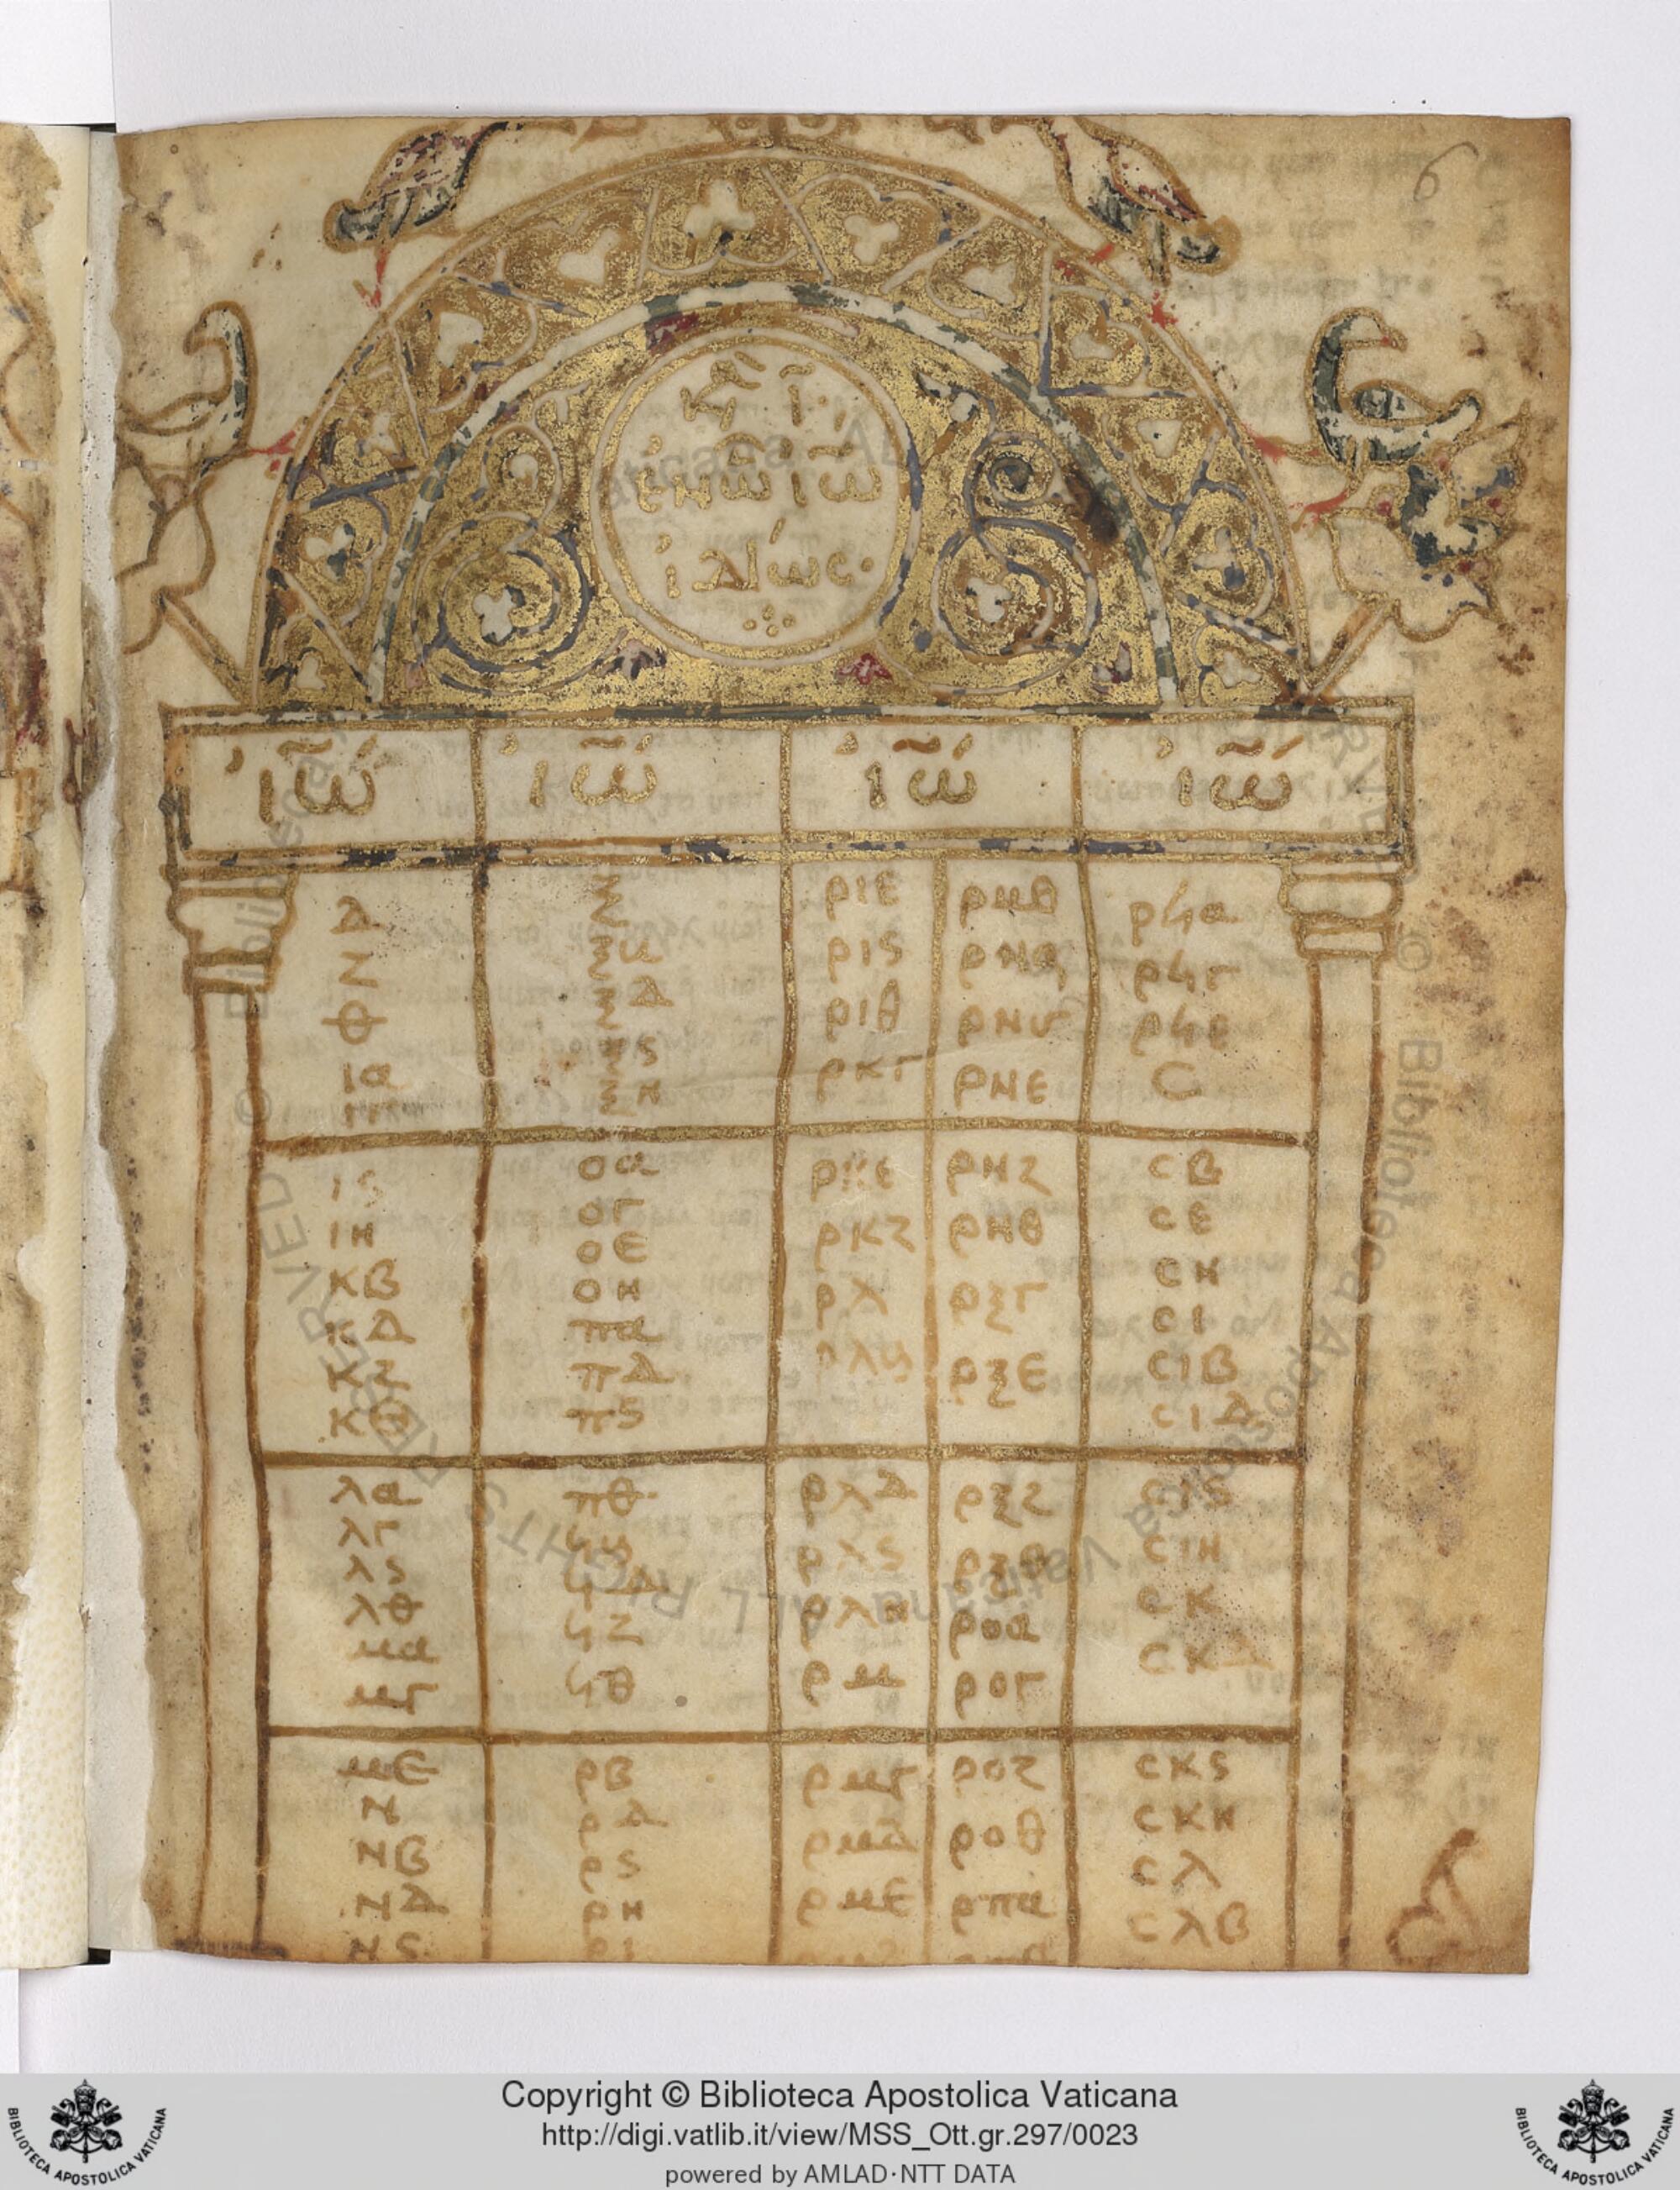 6
ἐν ῶ ἰῶ
ἰδίως·
ἰῶ ἰῶ ἰῶ ἰῶ
δ
ζ
θ
ια
ις
ιη
κβ
κδ
κζ
κθ
λα
λγ
λς
λθ
μα
μγ
με
ν
νβ
νδ
νς
ξ
ξβ
ξδ
ξς
ξη
οα
ογ
οε
οη
πα
πδ
πς
πθ
ϟβ
ϟδ
ϟζ
ϟθ
ρβ
ρδ
ρς
ρη
ρι
ριε
ρις
ριθ
ρκγ
ρκε
ρκζ
ρλ
ρλβ
ρλδ
ρλς
ρλη
ρμ
ρμγ
ρμδ
ρμε
ρμθ
ρνα
ρνγ
ρνε
ρνζ
ρνθ
ρξγ
ρξε
ρξζ
ρξθ
ροα
ρογ
ροζ
ροθ
ρπα
ρϟα
ρϟγ
ρϟε
σ
σβ
σε
ση
σι
σιβ
σιδ
σις
σιη
σκ
σκδ
σκς
σκη
σλ
σλβ
Copyright © Biblioteca Apostolica Vaticana
http://digi.vatlib.it/view/MSS_Ott.gr.297/0023
powered by AMLAD·NTT DATA
BIBLIOTECA APOSTOLICA VATICANA
BIBLIOTECA APOSTOLICA VATICANA